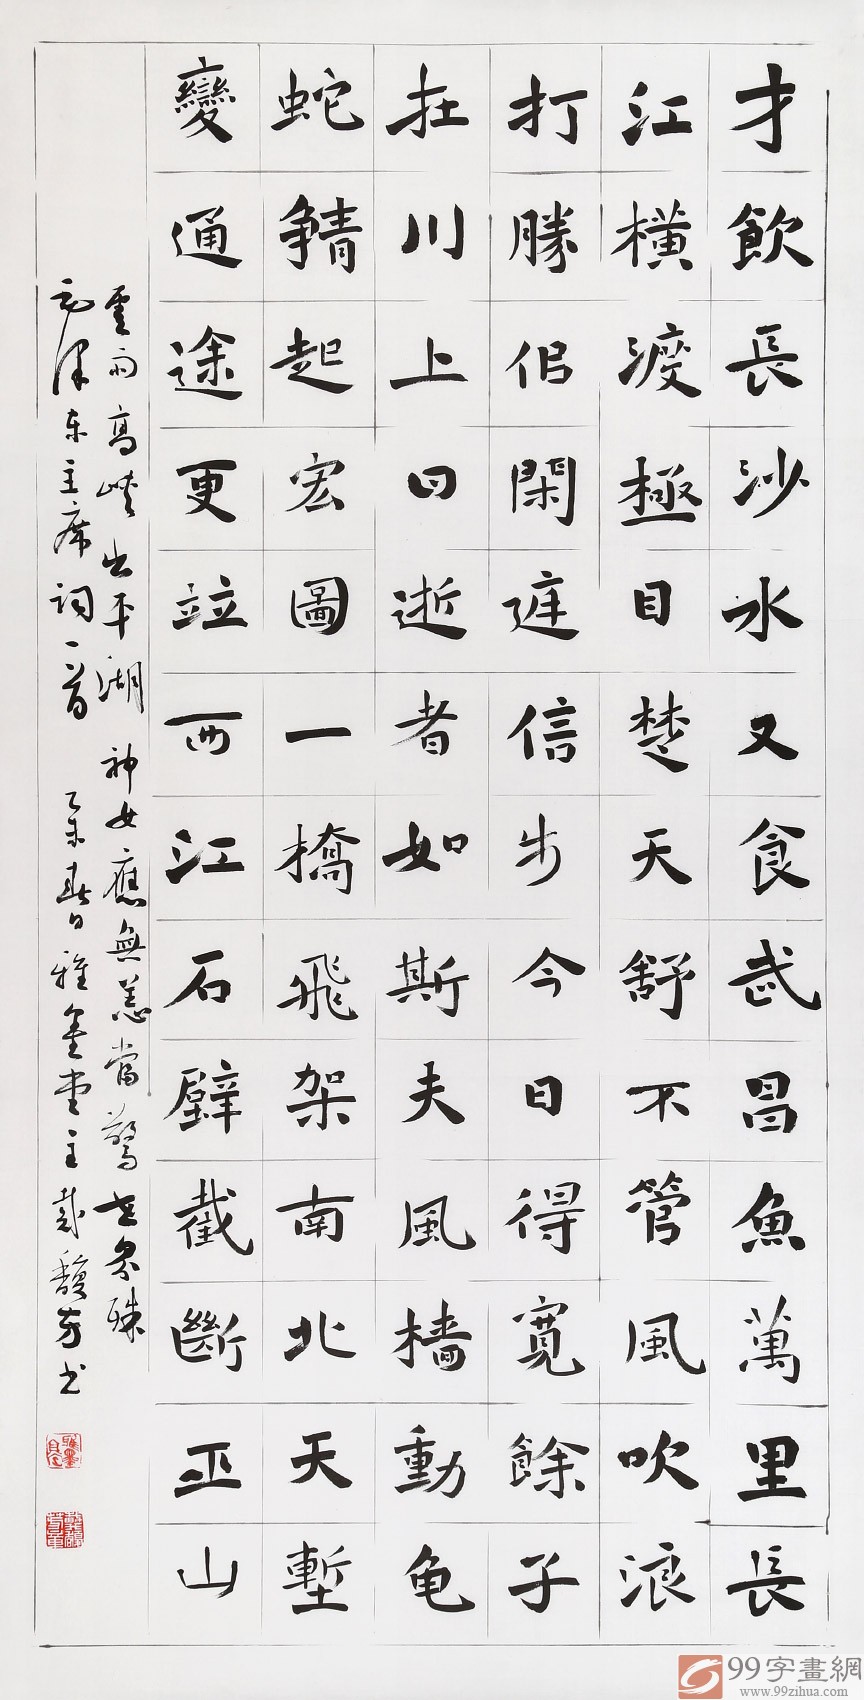 才飲長沙水又食武昌魚萬里長
江橫渡極目楚天舒不管風吹浪
打勝佀閑庭信步今日得寬餘子
在川上曰逝者如斯夫風檣動龟
蛇靜起宏圖一橋飛架南北天塹
變通途更竝西江石壁截斷巫山
雲雨高峽出平湖 神女應無恙當驚世界殊
毛澤东主席詞一首 乙未春日雅墨堂主戴馥芳书
99字畫網
www.99zihua.com